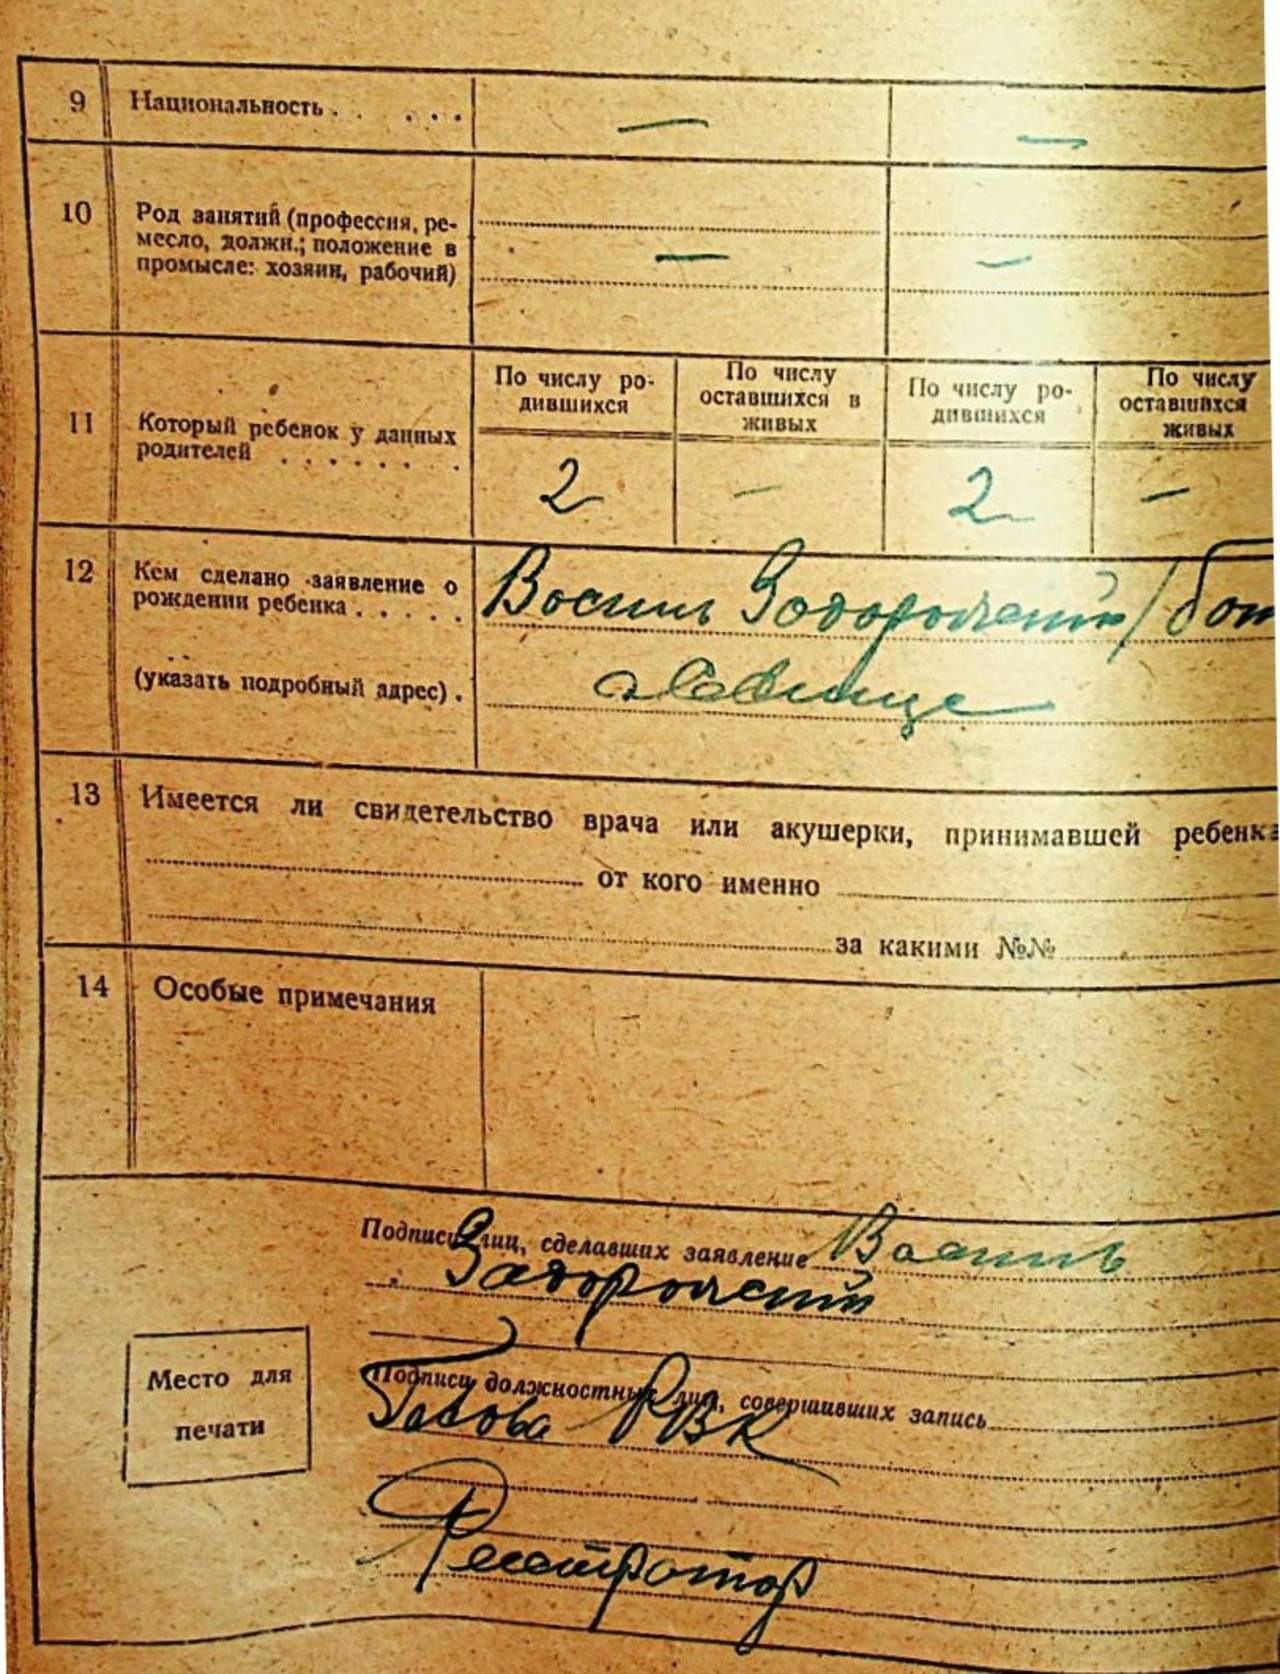 9 Национальность . . . . . — —
10 Род занятий (профессия, ре-
месло, должн.; положение в
промысле: хозяин, рабочий) — —
По числу ро-
дившихся
По числу
оставшихся в
живых
По числу ро-
дившихся
По числу
оставшихся
живых
11 Который ребенок у данных
родителей . . . . . . .
2 — 2 —
12 Кем сделано заявление о
рождении ребенка . . . . .
Василь Задорожний / бат
(указать подробный адрес) .
13 Имеется ли свидетельство врача или акушерки, принимавшей ребенка
от кого именно
за какими №№
14 Особые примечания
Подписи лиц, сделавших заявление Василь
Задорожний
Место для
печати
Подписи должностных лиц, совершивших запись
Голова РВК
Реєстратор